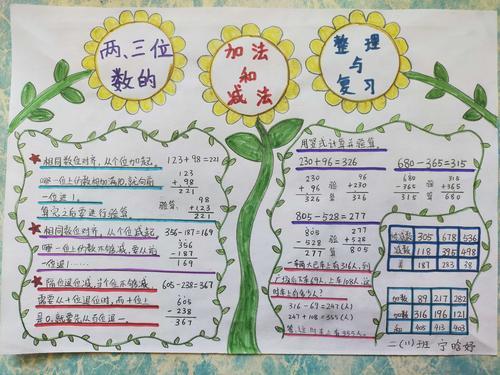 两、三位
数的
加法
和
减法
整理
与
复习
相同数位对齐，从个位加起，
哪一位上的数相加满10，就向前
一位进1。
算完之后要进行验算。
123+98=221
123
+ 98
221
验算:
98
+123
221
相同数位对齐，从个位减起，
哪一位上的数不够减，要从前
一位退1……
356-187=169
356
-187
169
隔位退位减，当个位不够减
需要从十位退位时，而十位上
是0，就要先从百位退一。
605-238=367
605
-238
367
用竖式计算并验算。
230+96=326
230
+ 96
326
验算
96
+230
326
680-365=315
680
-365
315
验算
315
+365
680
805-528=277
805
-528
277
验算
277
+528
805
一辆大巴车上有316人，到
广场后下车69人，上车108人，这
时车上有多少人？
316-69=247(人)
247+108=355(人)
答：这时车上有355人。
被减数 305 678 536
减数 118 395 498
差 187 283 38
加数 89 217 282
加数 316 196 121
和 405 413 403
二(11)班 宁晗妤